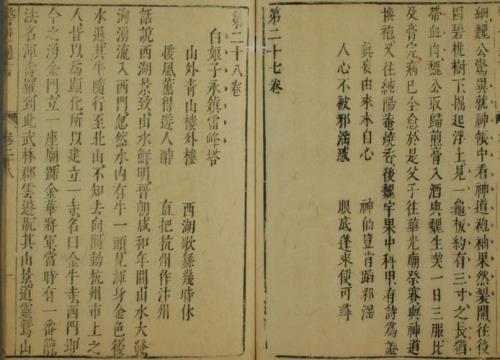 細公驚異就神帳中看神道袍袖果然裂開往後
園碧桃樹下掘起浮土見一龜板約有三寸之長猶
帶血肉魏公取歸煎膏入酒與魏生喫一日三服比
及膏完病已全愈於是父子往華光廟祭賽與神道
換袍又往純陽庵燒香後魏宇果中科甲有詩為證
真妄由來本自心　神仙豈肯蹈邪淫
人心不被邪淫惑　眼底蓬萊便可尋
第二十七卷
第二十八卷
白娘子永鎮雷峰塔
山外青山樓外樓　西湖歌舞幾時休
暖風薰得遊人醉　直把杭州作汴州
話說西湖景致山水鮮明晉朝咸和年間山水大發
洶湧流入西門忽然水內有牛一頭見渾身金色後
水退其牛隨行至北山不知去向鬨動杭州市上之
人皆以為顯化所以建立一寺名曰金牛寺西門即
今之湧金門立一座廟號金華將軍當時有一番僧
法名渾壽羅到此武林郡雲遊玩其山景道靈鷲山